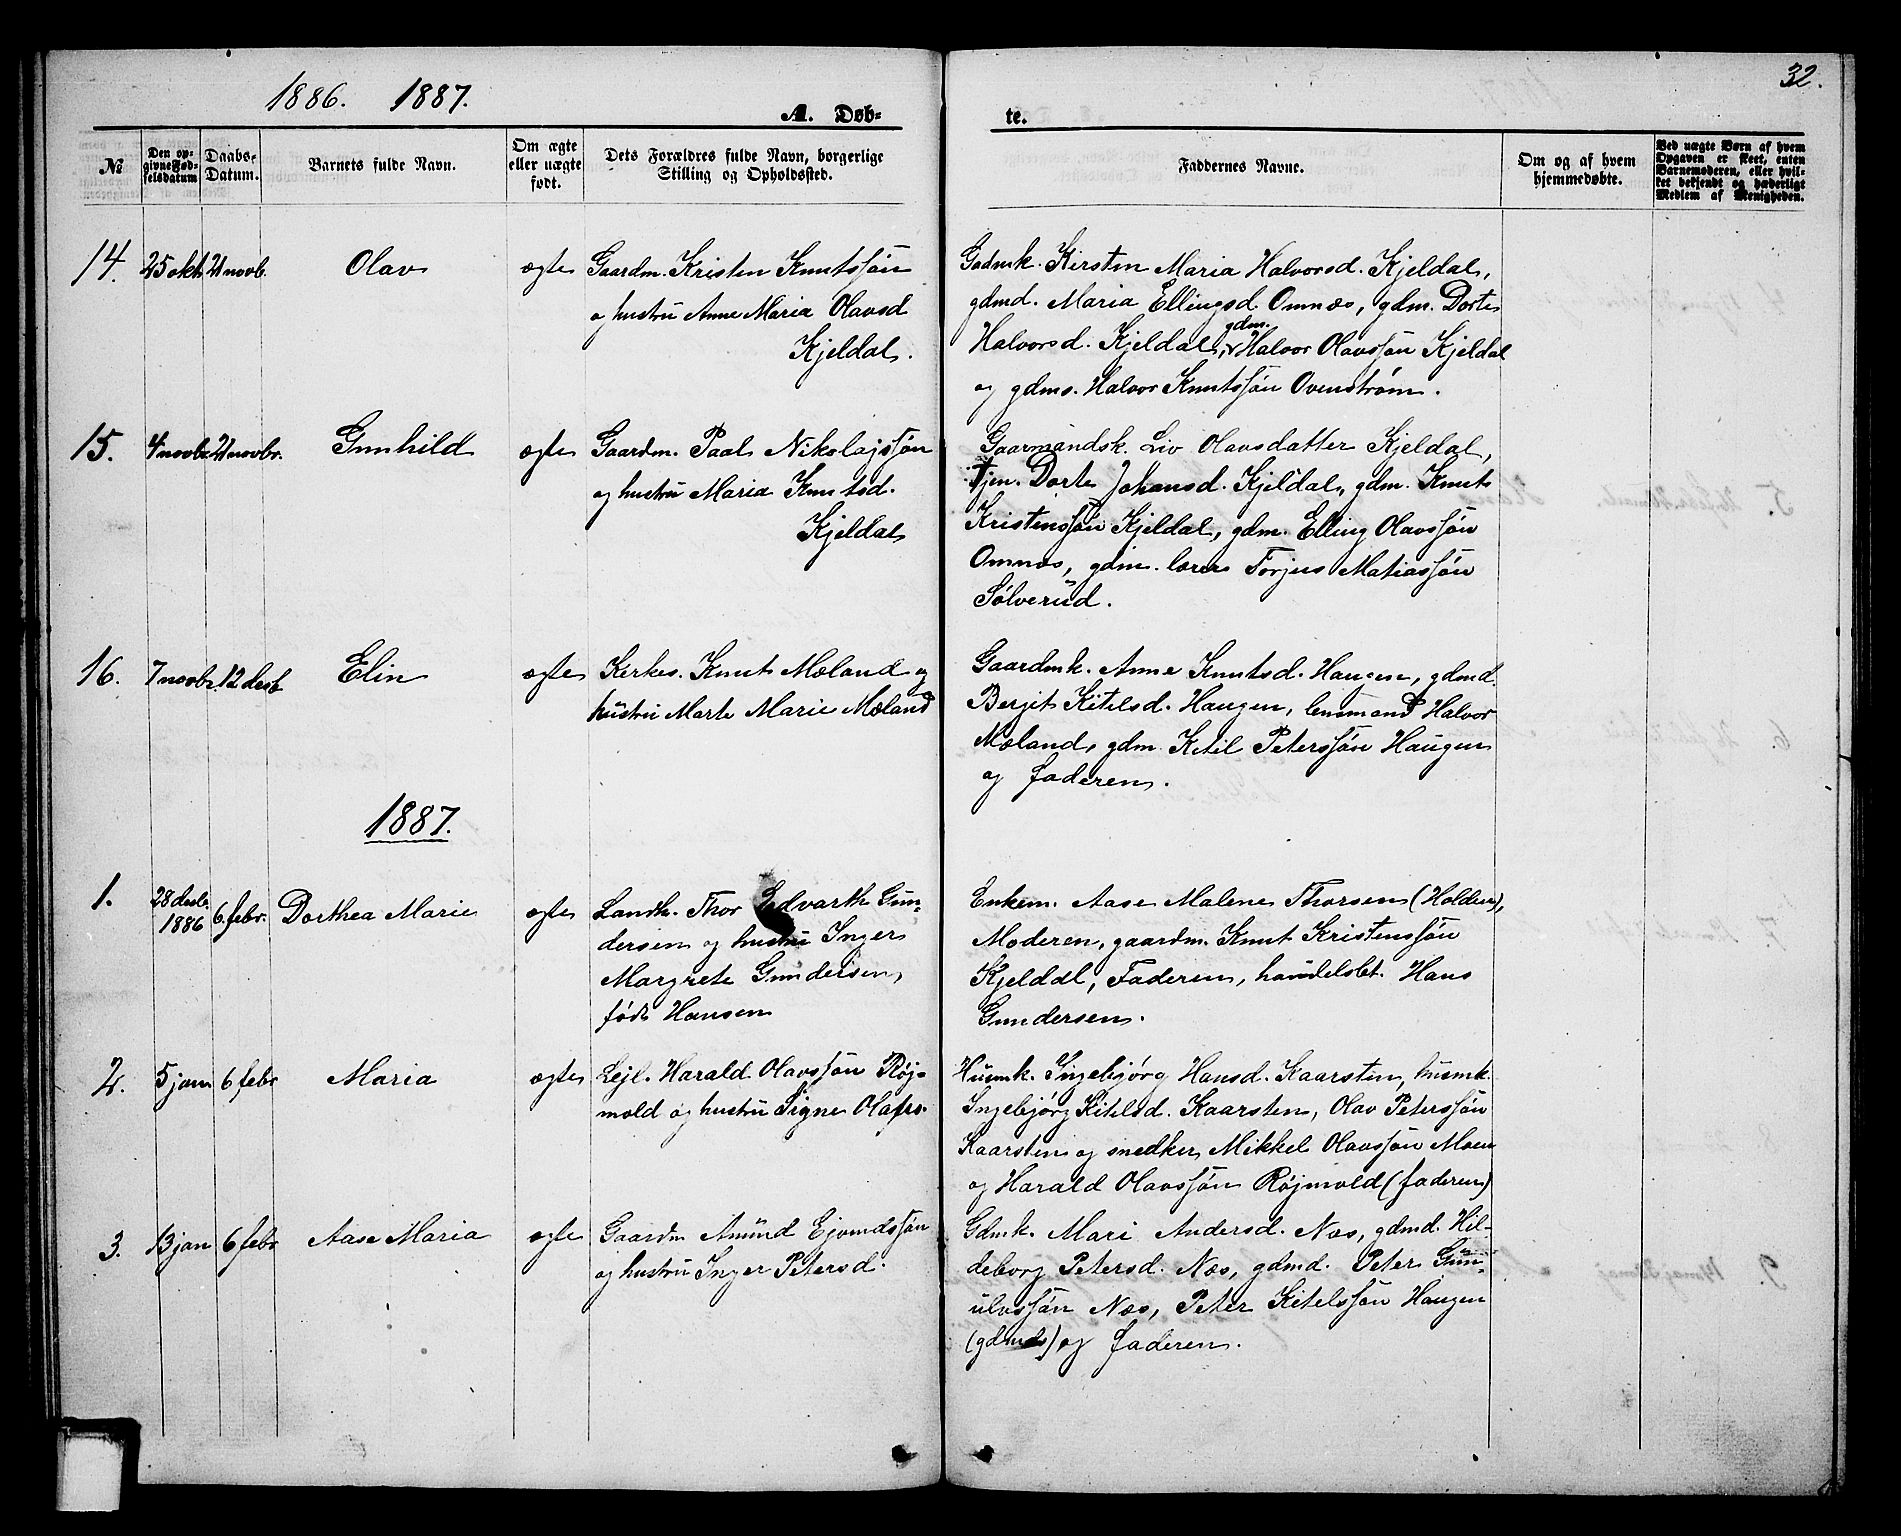 1886. 1887.
32.
A. Døb-
te.
№
Den op-
givne Fød-
selsdatum
Daabs-
Datum.
Barnets fulde Navn.
Om ægte
eller uægte
født.
Dets Forældres fulde Navn, borgerlige
Stilling og Opholdssted.
Faddernes Navne.
Om og af hvem
hjemmedøbte.
Ved uægte Børn af hvem
Opgaven er skeet, enten
Barnemoderen, eller hvil-
ket bekjendt og hæderligt
Medlem af Menigheden.
14. 25 okt. 21 novb. Olav ægte Gaardm. Kristen Knutssøn
og hustru Anne Maria Olavsd
Kjeldal.
Gadmk. Kirsten Maria Halvorsd. Kjeldal,
gdmd. Maria Ellingsd. Omnæs, gdm. Dorte
Halvorsd. Kjeldal, gdm. Halvor Olavssøn Kjeldal
og gdms. Halvor Knutssøn Ovenstrøm.
15. 4 novbr 21 novbr. Gunhild ægte Gaardm. Paal Nikolajssøn
og hustru Maria Knutsd.
Kjeldal
Gaarmandsk. Liv Olavsdatter Kjeldal,
Tjen. Dorte Johansd. Kjeldal, gdm. Knut
Kristenssøn Kjeldal, gdm. Elling Olavssøn
Omnæs, gdm. lærer Torjus Matiassøn
Sølverud.
16. 7 novbr. 12 desb Elin ægte Kerkes. Knut Mæland og
hustru Marte Marie Mæland
Gaardmk. Anne Knutsd. Haugen, gdmd.
Berjit Kitelsd. Haugen, lensmand Halvor
Mæland, gdm. Ketil Peterssøn Haugen
og faderen.
1887.
1. 28 desb. 1886 6. febr. Dorthea Marie ægte Landh. Thor Edvarth Gun-
dersen og hustru Inger
Margrete Gundersen,
født Hansen
Enkem. Aase Malene Thorsen (Holden),
Moderen, gaardm. Knut Kristenssøn
Kjeldal, Faderen, handelsbt. Hans
Gundersen.
2. 5 jan 6 febr Maria ægte Lejl. Harald Olavssøn Røj-
mold og hustru Signe Olafs.
Husmk. Ingebjørg Hansd. Kaarsten, husmk.
Ingebjørg Kitelsd. Kaarsten, Olav Peterssøn
Kaarsten og snedker Mikkel Olavssøn Moen
og Harald Olavssøn Røjmold (faderen)
3. 13 jan 6 febr Aase Maria ægte Gaardm Amund Ejvindssøn
og hustru Inger Petersd.
Gdmk. Mari Andersd. Næs, gdmd. Hil-
deborg Petersd. Næs, gdmd. Peter Gun-
ulvssøn Næs, Peter Kitelssøn Haugen
(gdmds) og faderen.